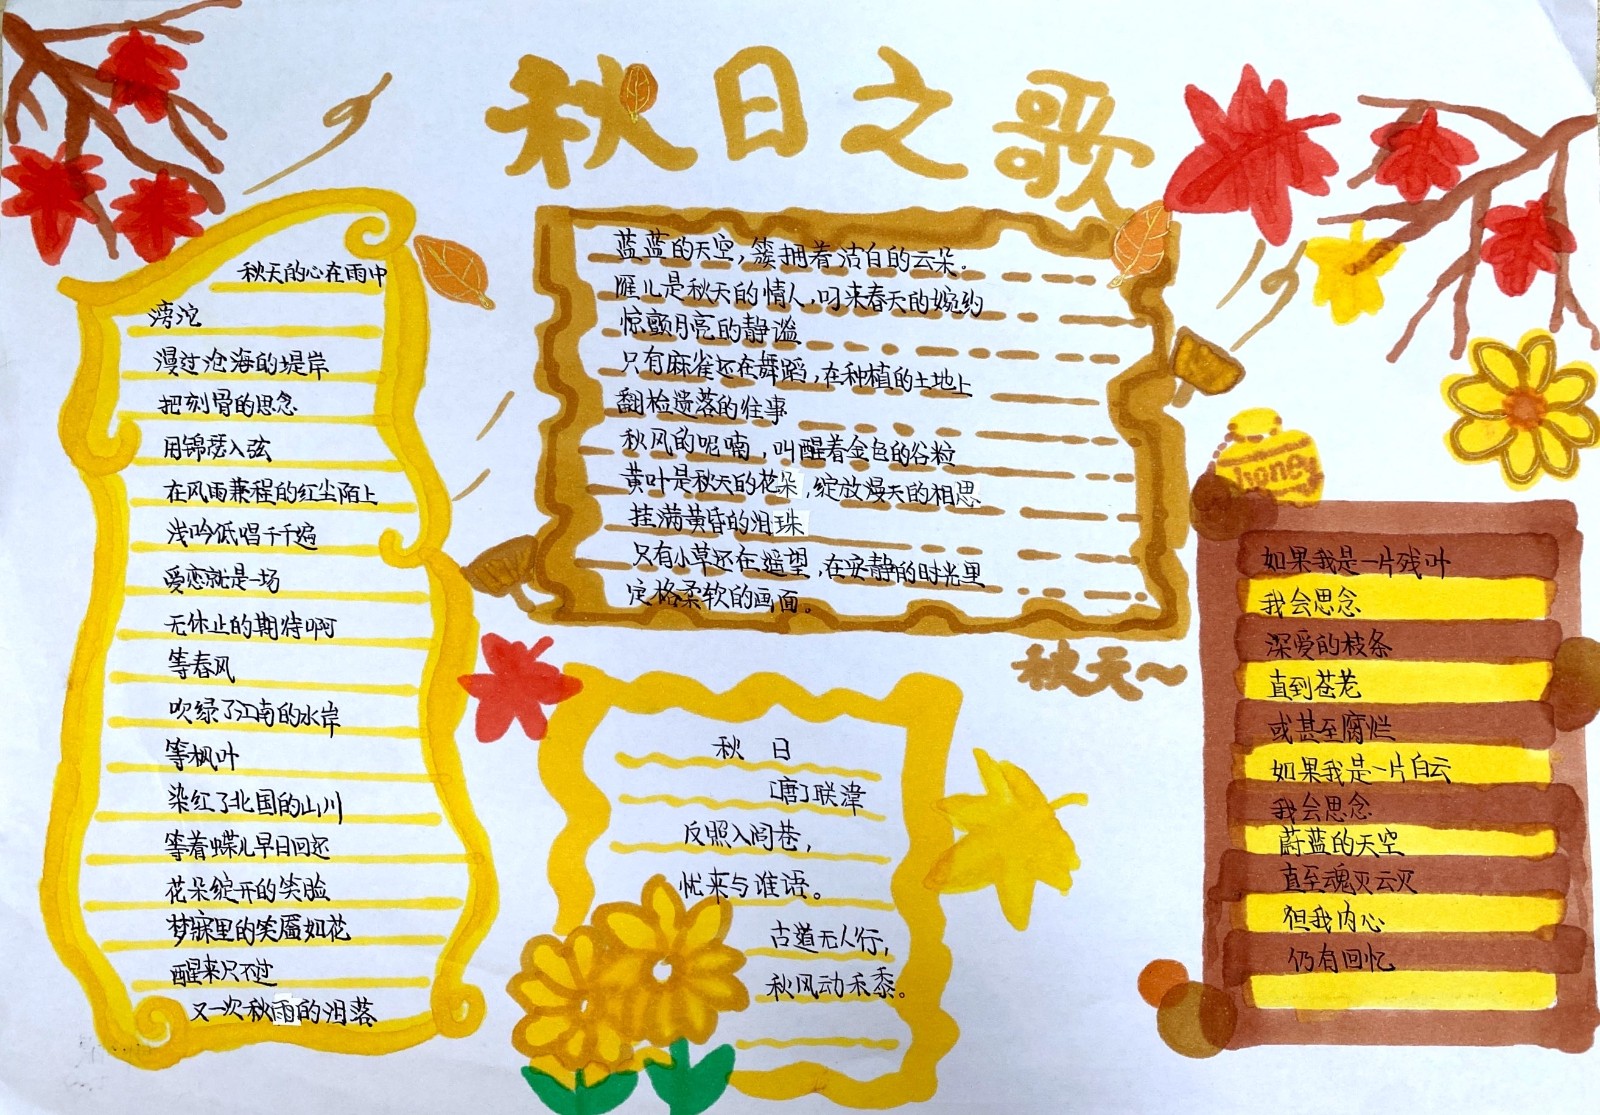 秋日之歌
秋天的心在雨中
滂沱
漫过沧海的堤岸
把刻骨的思念
用锦瑟入弦
在风雨兼程的红尘陌上
浅吟低唱千千遍
爱恋就是一场
无休止的期待啊
等春风
吹绿了江南的水岸
等枫叶
染红了北国的山川
等着蝶儿早日回还
花朵绽开的笑脸
梦寐里的笑靥如花
醒来只不过
又一次秋雨的泪落
蓝蓝的天空,簇拥着洁白的云朵。
雁儿是秋天的情人,叼来春天的婉约
惊颤月亮的静谧
只有麻雀还在舞蹈,在种植的土地上
翻检遗落的往事
秋风的呢喃,叫醒着金色的谷粒
黄叶是秋天的花朵,绽放漫天的相思
挂满黄昏的泪珠
只有小草还在遥望,在安静的时光里
定格柔软的画面。
秋天~
秋 日
[唐]耿湋
反照入闾巷,
忧来与谁语。
古道无人行,
秋风动禾黍。
honey
如果我是一片残叶
我会思念
深爱的枝条
直到苍老
或甚至腐烂
如果我是一片白云
我会思念
蔚蓝的天空
直至魂灭云灭
但我内心
仍有回忆